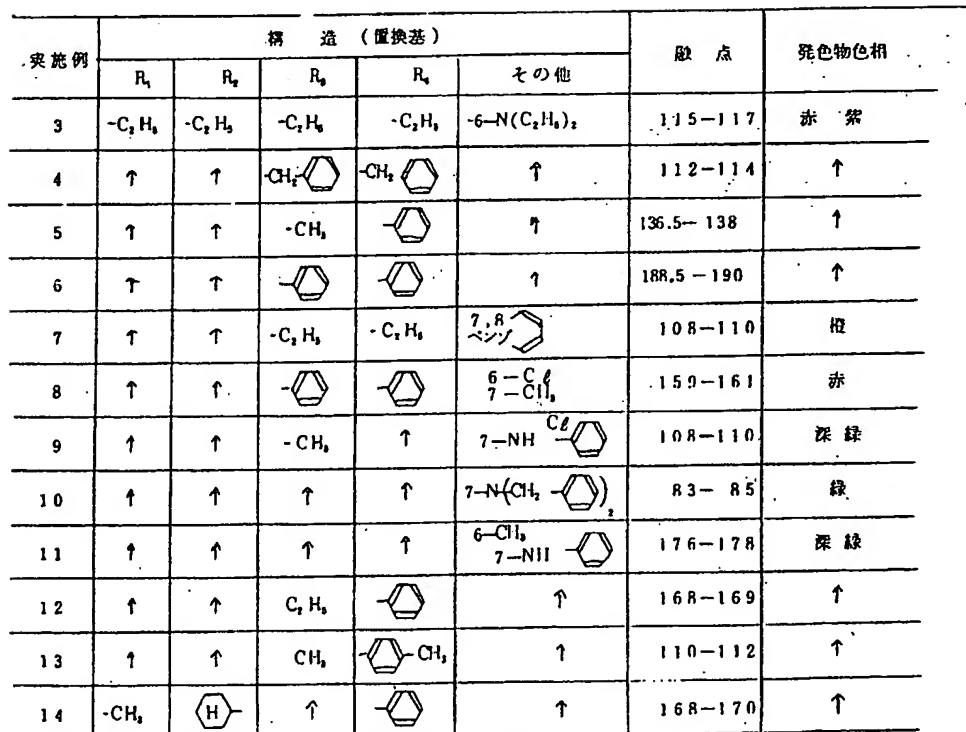 実施例 構 造 (置換基) 融 点 発色物色相
R₁ R₂ R₃ R₄ その他
3 -C₂H₅ -C₂H₅ -C₂H₅ -C₂H₅ -6-N(C₂H₅)₂ 115-117 赤 紫
4 ↑ ↑ -CH₂- -CH₂ ↑ 112-114 ↑
5 ↑ ↑ -CH₃ ↑ 136.5-138 ↑
6 ↑ ↑ ↑ 188.5-190 ↑
7 ↑ ↑ -C₂H₅ -C₂H₅ 7,8 ベンゾ 108-110 橙
8 ↑ ↑ 6-Cℓ 7-CH₃ 159-161 赤
9 ↑ ↑ -CH₃ ↑ 7-NH Cℓ 108-110 深緑
10 ↑ ↑ ↑ ↑ 7-N(CH₂ )₂ 83-85 緑
11 ↑ ↑ ↑ ↑ 6-CH₃ 7-NH 176-178 深緑
12 ↑ ↑ C₂H₅ ↑ 168-169 ↑
13 ↑ ↑ CH₃ -CH₃ ↑ 110-112 ↑
14 -CH₃ H ↑ ↑ 168-170 ↑